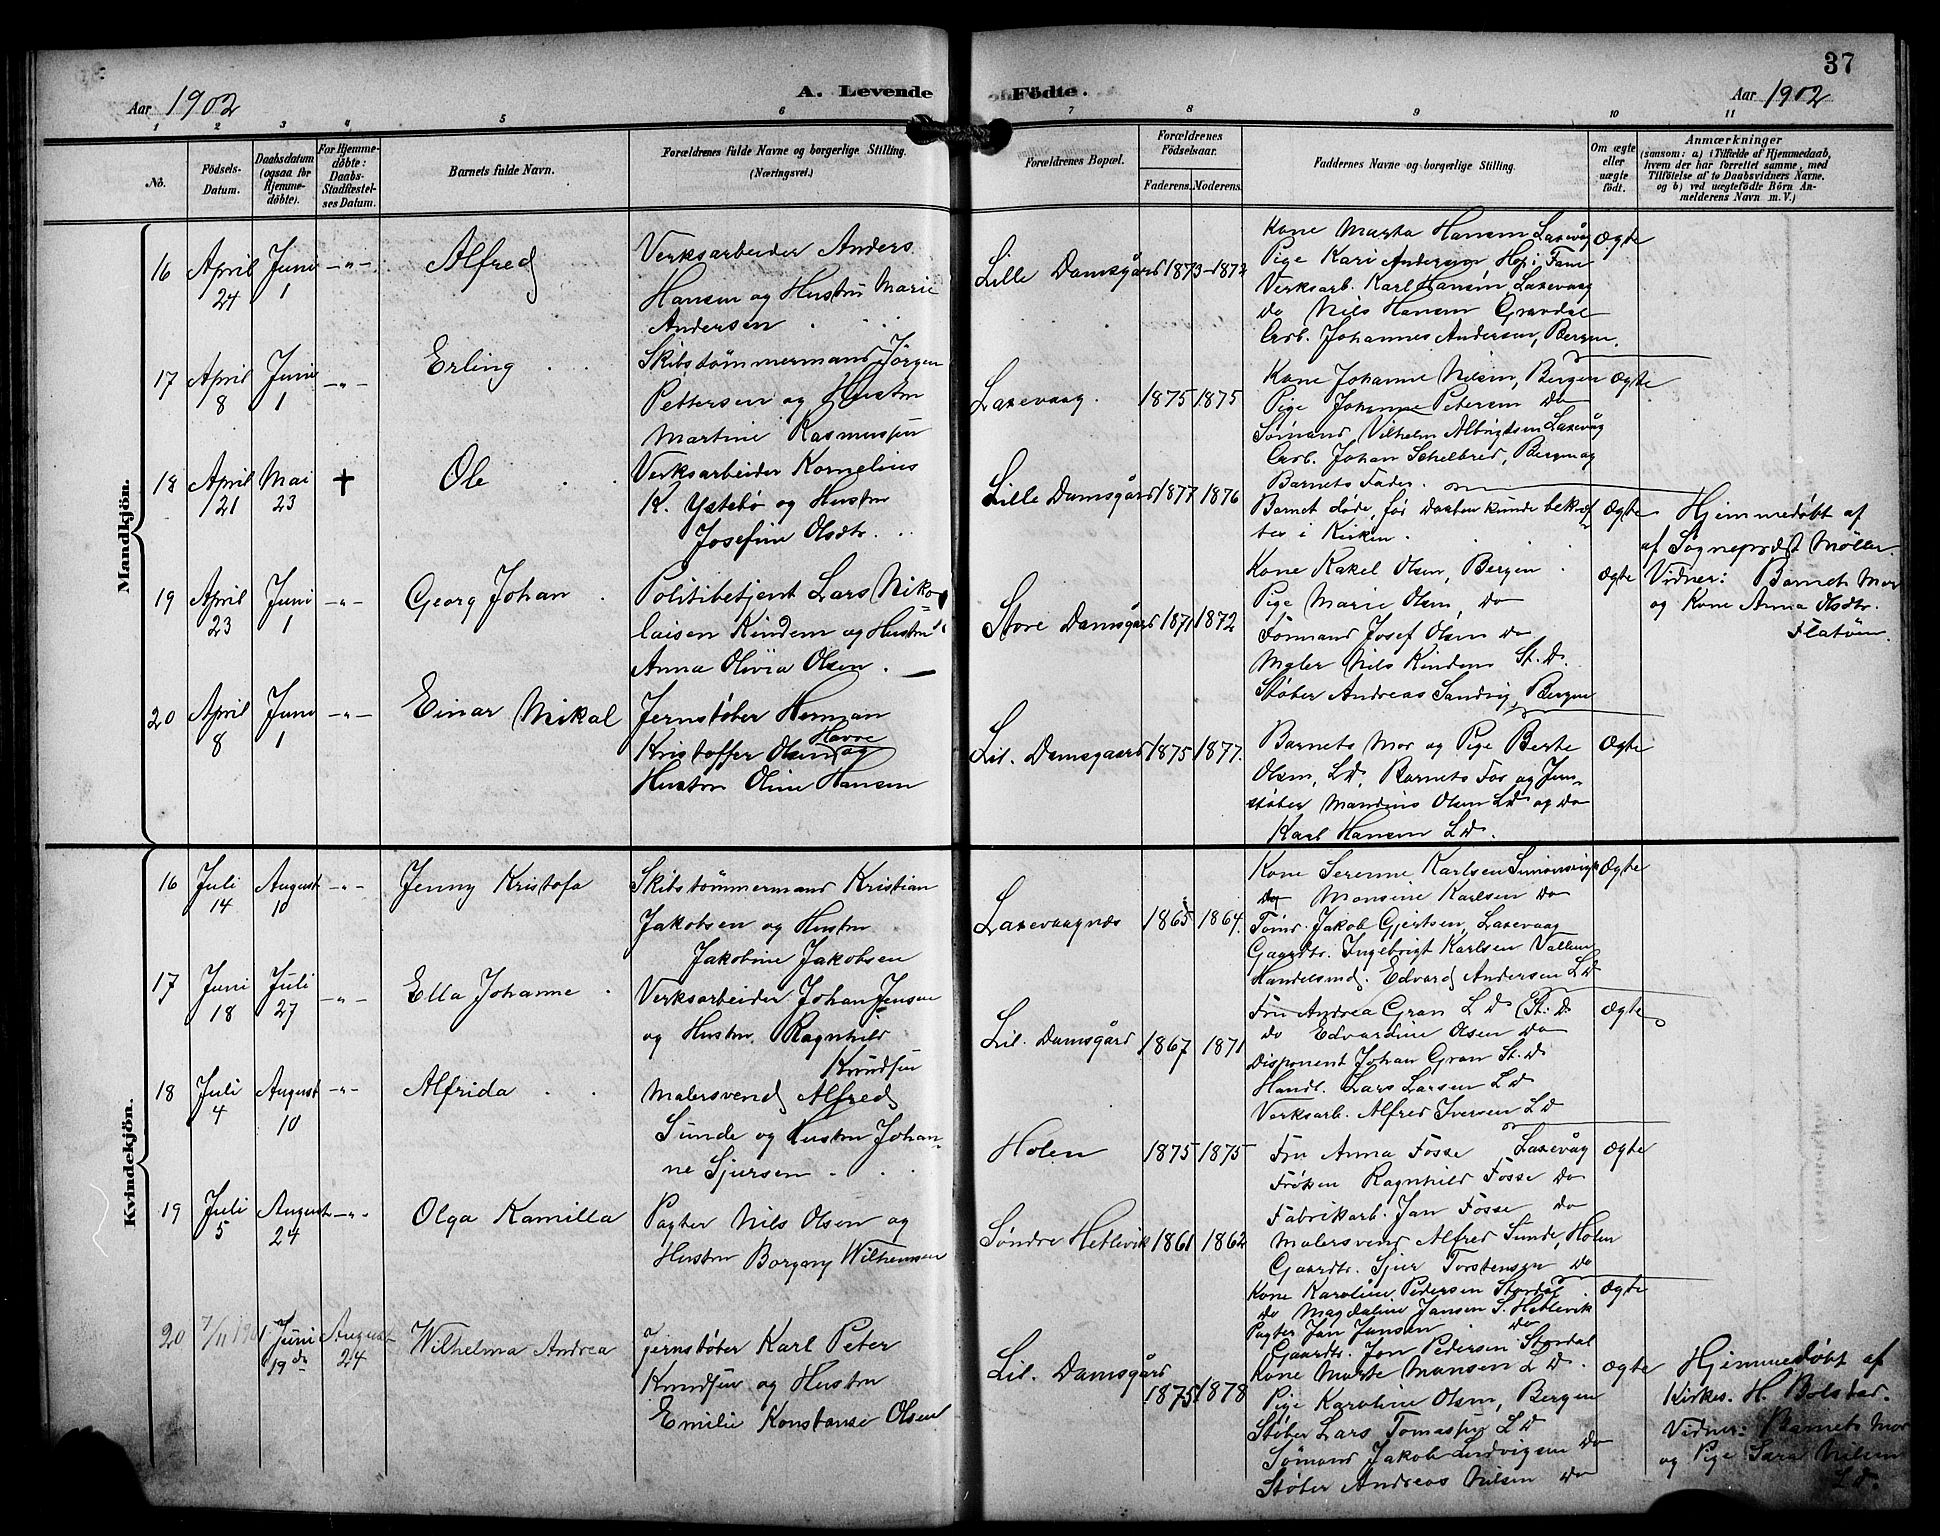 37
Aar 1902
A. Levende Födte.
Aar 1902
1 2 3 4 5 6 7 8 9 10 11
No.
Födsels-
Datum.
Daabsdatum
(ogsaa for
Hjemme-
döbte).
For Hjemme-
döbte:
Daabs-
Stadfæstel-
ses Datum.
Barnets fulde Navn.
Forældrenes fulde Navne og borgerlige Stilling.
(Næringsvei.)
Forældrenes Bopæl.
Forældrenes
Födselsaar.
Faderens. Moderens.
Faddernes Navne og borgerlige Stilling.
Om ægte
eller
uægte
födt.
Anmærkninger
(saasom: a) i Tilfælde af Hjemmedaab,
hvem der har forrettet samme, med
Tilföielse af to Daabsvidners Navne.
og b) ved uægtefödte Börn An-
melderens Navn m. V.)
Mandkjön.
16 April 24 Juni 1 -"- Alfred
Verksarbeider Anders
Hansen og Hustru Marie
Andersen
Lille Damsgård 1873-1872
Kone Marta Hansen Laxevåg
Pige Kari Andersen Hop i Fane
Verksarb. Karl Hansen, Laxevaag
do Nils Hansen Gravdal
Arb. Johannes Andersen, Bergen.
Ægte
17 April 8 Juni 1 -"- Erling
Skibstømmermand Jörgen
Pettersen og Hustru
Martine Rasmussen
Laxevaag. 1875 1875
Kone Johanne Nilsen, Bergen
Pige Johanne Petersen do
Sømand Vilhelm Albrigtsen Laxevåg
Arb. Johan Schelbred, Bergen og
Barnets Fader.
Ægte
18 April 21 Mai 23 † Ole
Verksarbeider Kornelius
K. Ystebö og Hustru
Josefine Olsdtr.
Lille Damsgård 1877 1876
Barnet døde, før Daaben kunde bekræf
tes i Kirken.
Ægte
Hjemmedøbt af
af Sognepræst Møller.
Vidner: Barnets Mor
og Kone Anna Olsdtr.
Flatøen.
19 April 23 Juni 1 -"- Georg Johan
Politibetjent Lars Niko-
laisen Kindem og Hustru
Anna Olivia Olsen.
Store Damsgård 1871 1872
Kone Rakel Olsen, Bergen
Pige Marie Olsen, do
Formand Josef Olsen do
Maler Nils Kindem St. D.
Støber Andreas Sandvig, Bergen
Ægte
20 April 8 Juni 1 -"- Einar Mikal
Jernstøber Herman
Kristoffer Olsen Havre og
Hustru Oline Hansen
Lil. Damsgaard 1875 1877.
Barnets Mor og Pige Berte
Olsen, LD, Barnets Far og Jern-
støber Mandius Olsen LD og do
Karl Hansen LD.
Ægte
Kvindekjön.
16 Juli 14 August 10 -"- Jenny Kristofa
Skibstømmermand Kristian
Jakobsen og Hustru
Jakobine Jakobsen
Laxevaagnæs 1865 1864.
Kone Serenne Karlsen Simonsvigk
do Monsine Karlsen do
Tømr. Jakob Gjertsen, Laxevaag
Gaardbr. Ingebrigt Karlsen
Handelsmd. Edvard Andersen LD
Ægte
17 Juni 18 Juli 27 -"- Ella Johanne
Verksarbeider Johan Jensen
og Hustru Ragnhild
Knudsen
Lil. Damsgård 1867 1871
Fru Andrea Gran LD (St: D
do Edvardine Olsen do
Disponent Johan Gran St. D
Handl. Lars Larsen LD
Verksarb. Alfred Iversen LD
Ægte
18 Juli 4 August 10 -"- Alfrida
Malersvend Alfred
Sunde og Hustru Johan-
ne Sjursen
Holen 1875 1875
Fru Anna Fosse Laxevåg
Frøken Ragnhild Fosse do
Fabrikarb. Jan Fosse do
Malersvend Alfred Sunde, Holen
Gaardbr. Sjur Torstensen do
Ægte
19 Juli 5 August 24 -"- Olga Kamilla
Pagter Nils Olsen og
Hustru Borgany Wilhemsen
Søndre Hetlevik 1861 1862
Kone Karoline Pedersen Stordal
do Magdaline Jansen S. Hetlevik
Pagter Jan Jansen do
Gaardbr. Jon Pedersen Stordal
Ægte
20 7/11 1901 Juni 19de August 24 Wilhelma Andrea
Jernstøber Karl Peter
Knudsen og Hustru
Emilie Konstanse Olsen
Lil. Damsgård 1875 1878
Kone Marte Monsen LD.
Pige Karoline Olsen, Bergen
Støber Lars Tomassen LD
Sømand Jakob Ludvigsen do
Støber Andreas Nilsen do
Ægte
Hjemmedøbt af
Kirkes. H. Bolstad.
Vidner: Barnets Mor
og Pige Sara Nilsen
LD.